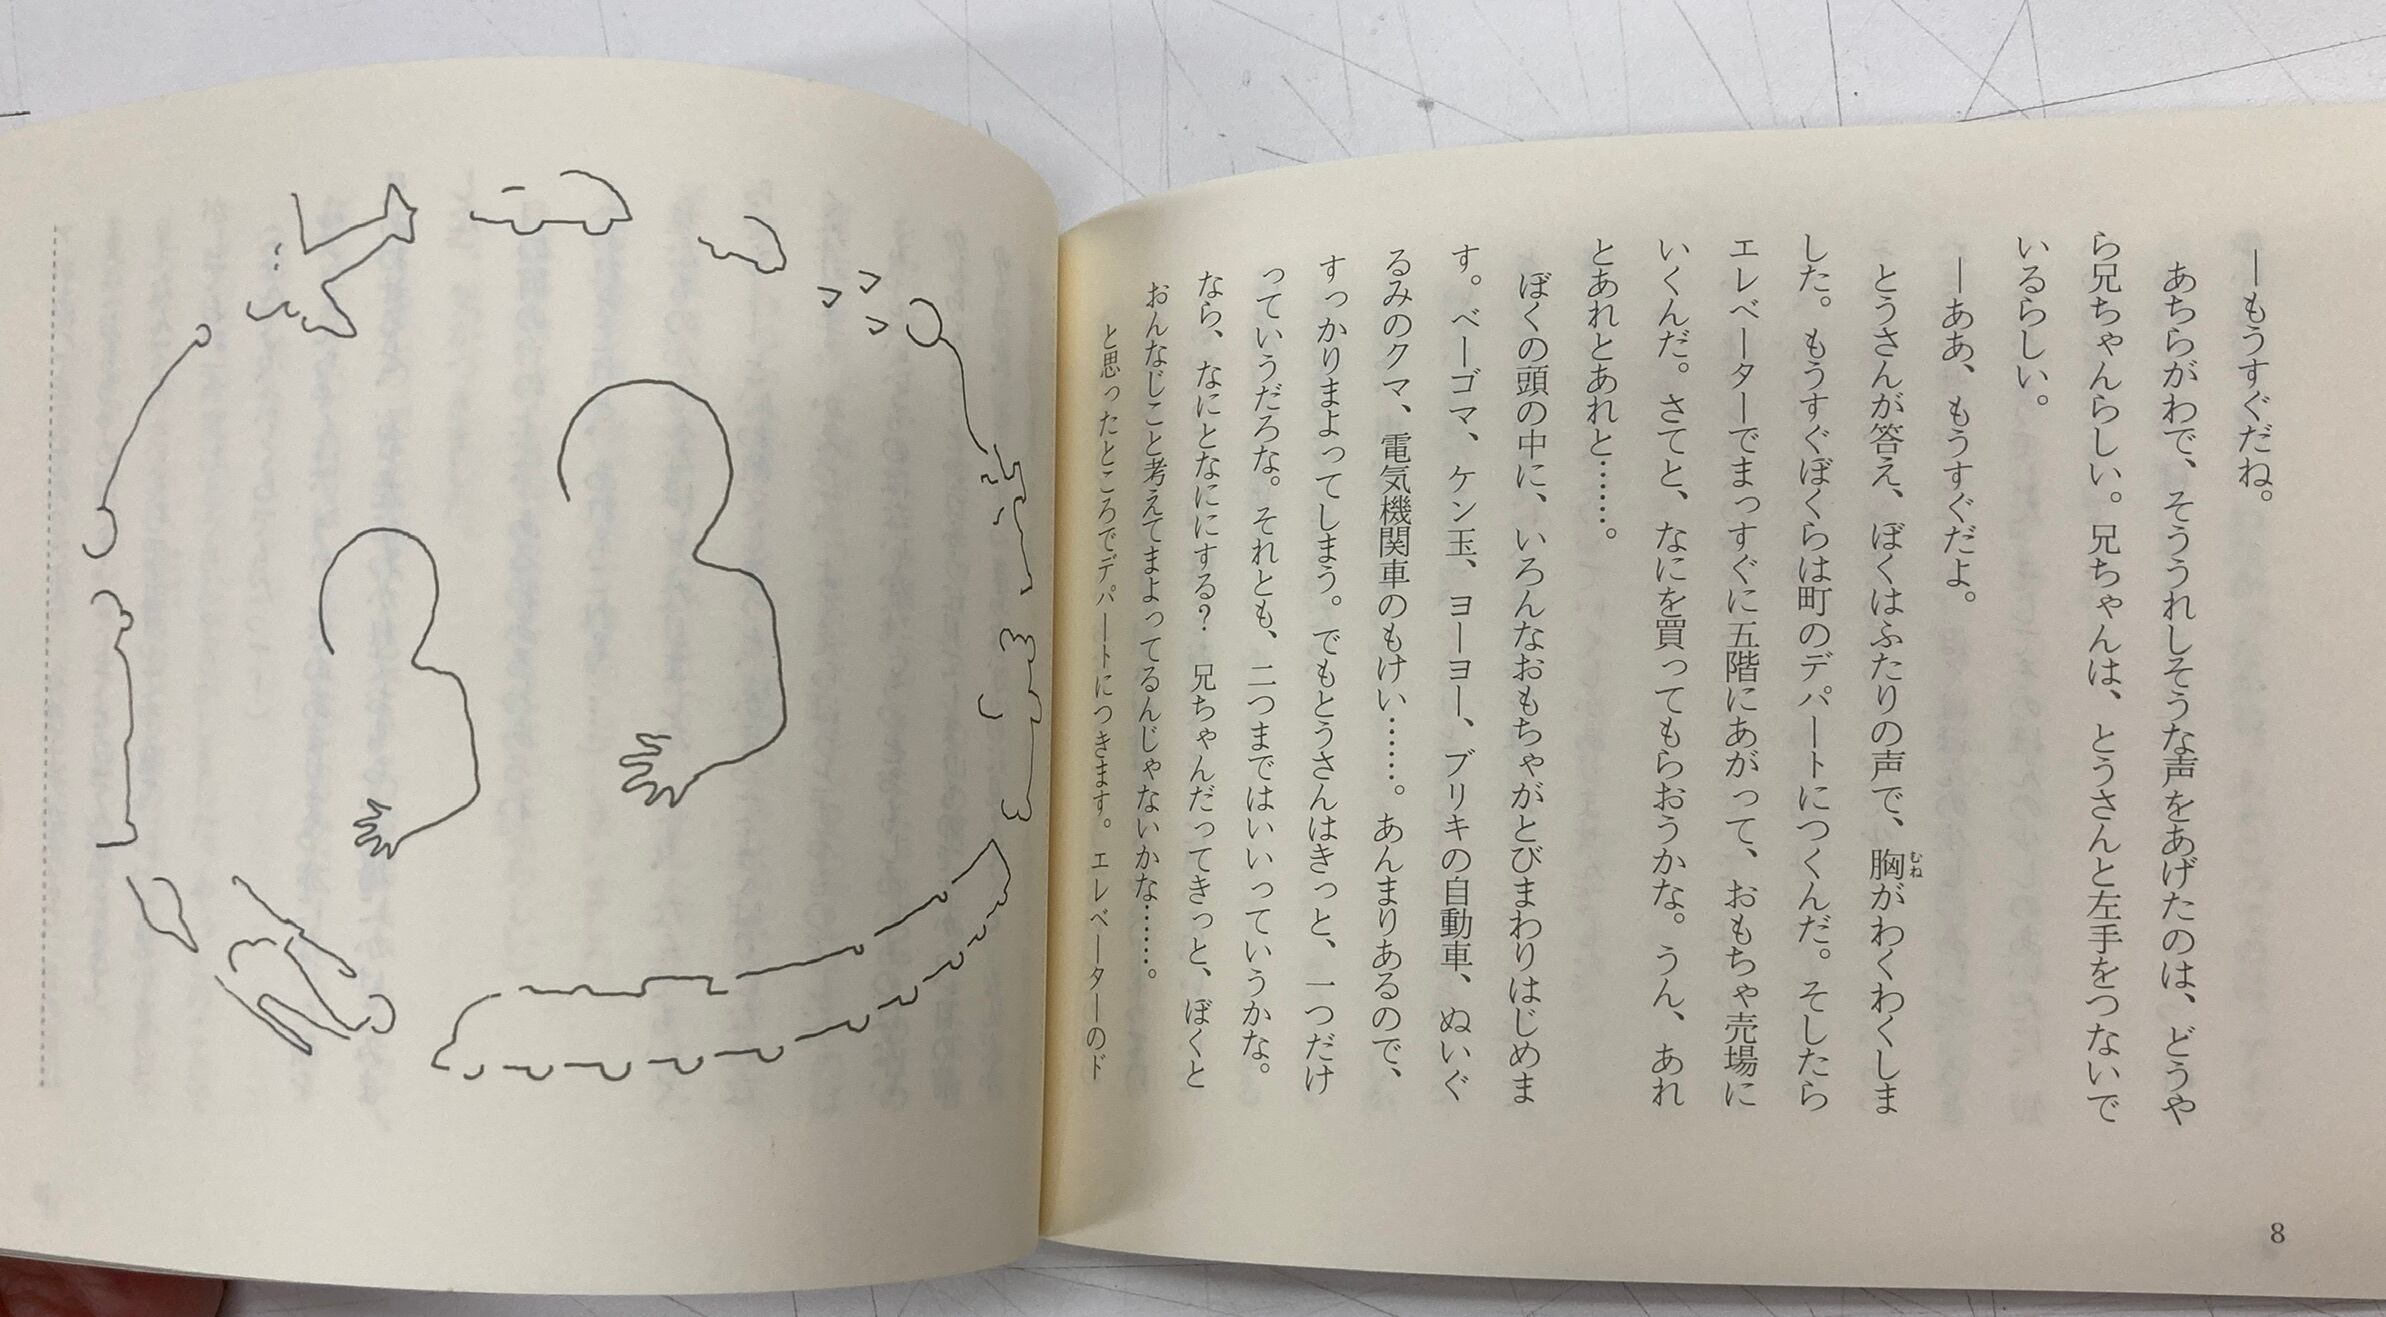 ―もうすぐだね。
あちらがわで、そううれしそうな声をあげたのは、どうや
ら兄ちゃんらしい。兄ちゃんは、とうさんと左手をつないで
いるらしい。
―ああ、もうすぐだよ。
とうさんが答え、ぼくはふたりの声で、胸がわくわくしま
した。もうすぐぼくらは町のデパートにつくんだ。そしたら
エレベーターでまっすぐに五階にあがって、おもちゃ売場に
いくんだ。さてと、なにを買ってもらおうかな。うん、あれ
とあれとあれと……。
ぼくの頭の中に、いろんなおもちゃがとびまわりはじめま
す。ベーゴマ、ケン玉、ヨーヨー、ブリキの自動車、ぬいぐ
るみのクマ、電気機関車のもけい……。あんまりあるので、
すっかりまよってしまう。でもとうさんはきっと、一つだけ
っていうだろな。それとも、二つまではいいっていうかな。
なら、なにとなににする？　兄ちゃんだってきっと、ぼくと
おんなじこと考えてまよってるんじゃないかな……。
と思ったところでデパートにつきます。エレベーターのド
むね
8